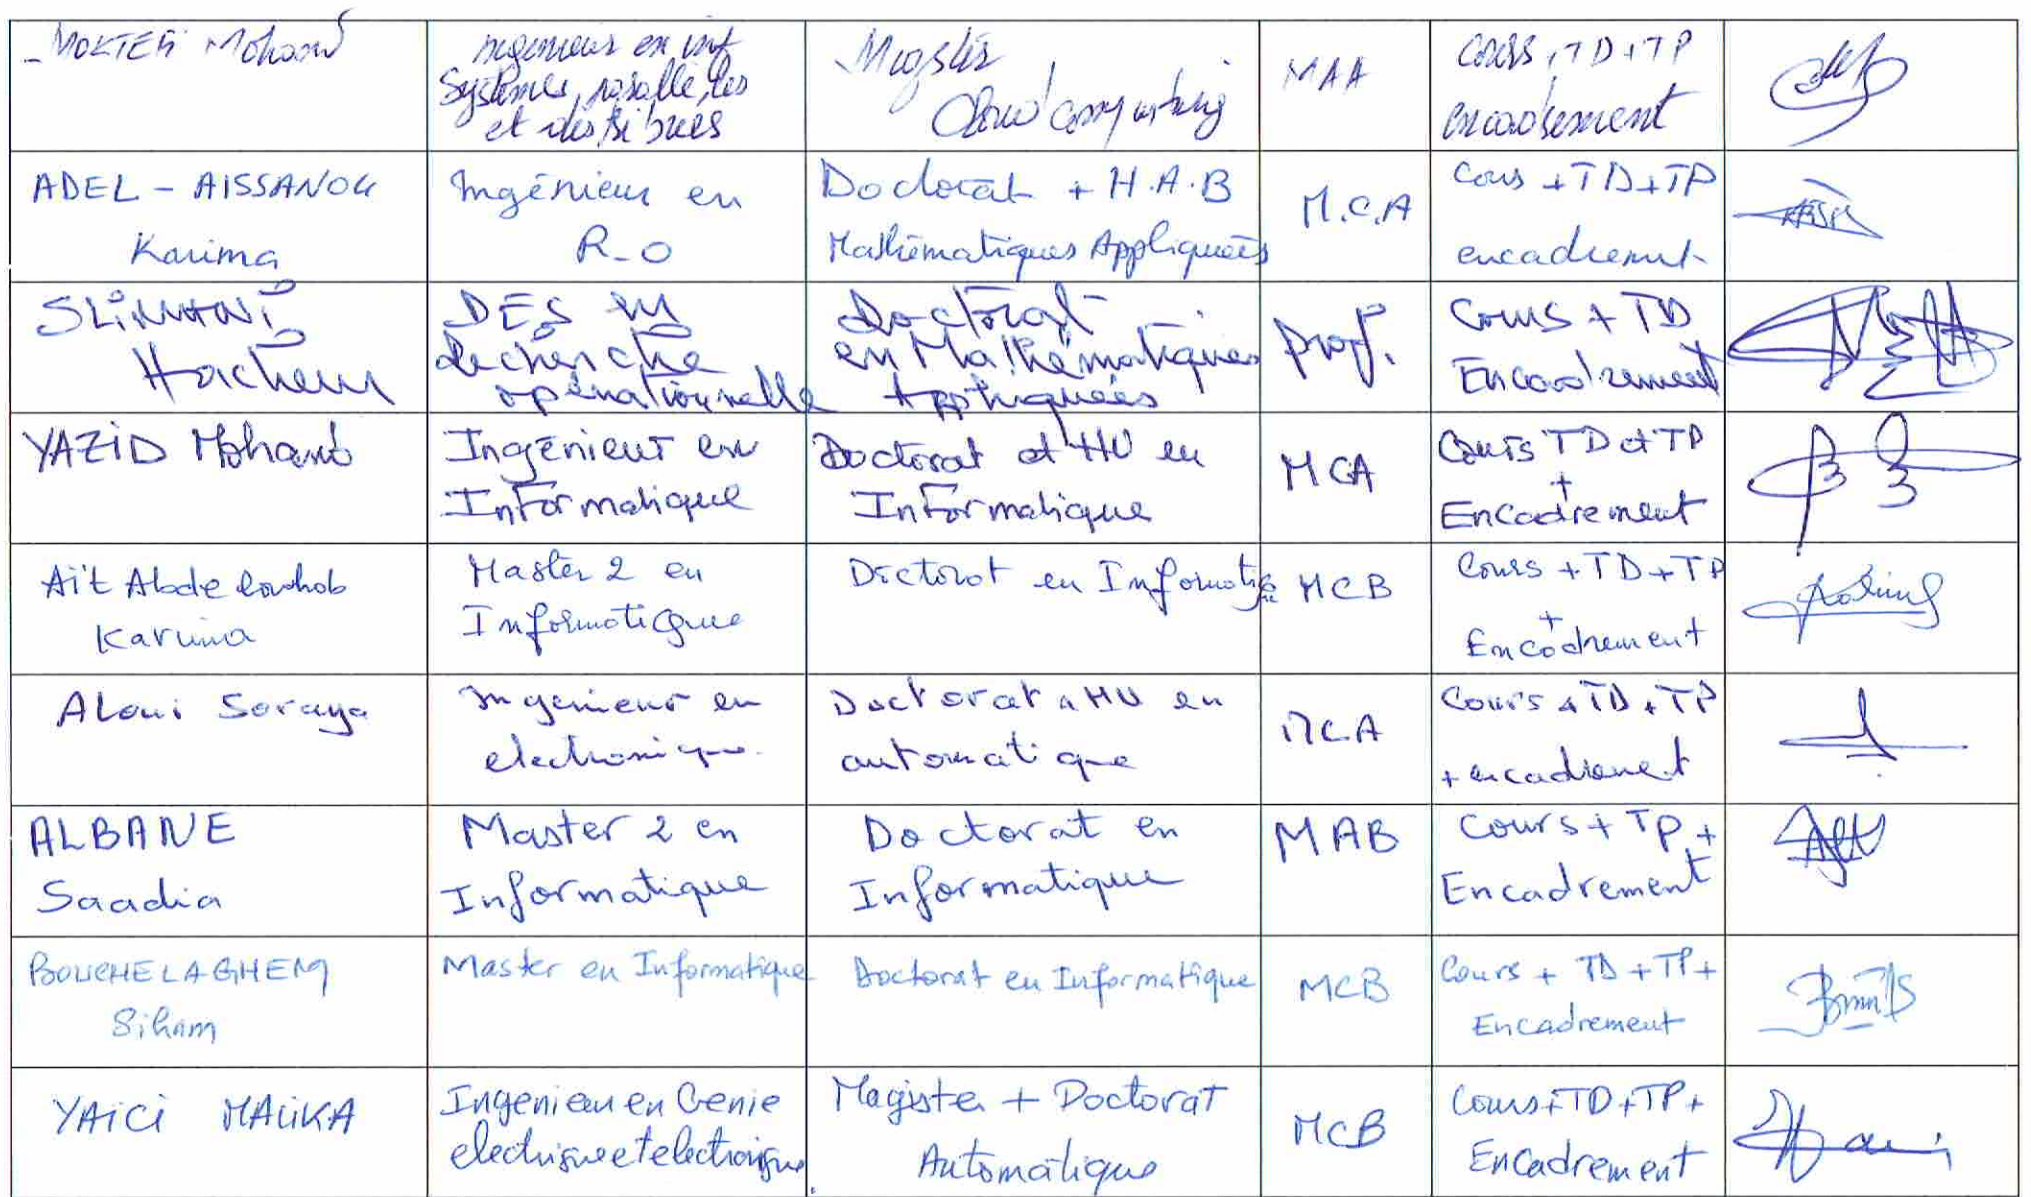 MOKTEFI Mohand
Ingenieur en inf
Systèmes parallèles
et distribues
Magistèr
Cloud computing
MAA
Cours, TD, TP
encadrement
ADEL - AISSANOU
Karima
Ingénieur en
R-O
Doctorat + H.A.B
Mathématiques Appliquées
M.C.A
Cours + TD + TP
encadrement
SLIMANI
Hachem
DES en
Recherche
opérationnelle
Doctorat
en Mathématiques
Appliquées
Prof.
Cours + TD
Encadrement
YAZID Mohand
Ingénieur en
Informatique
Doctorat et HU en
Informatique
MCA
Cours TD et TP
+
Encadrement
Aït Abdelouhab
Karima
Master 2 en
Informatique
Doctorat en Informatique
MCB
Cours + TD + TP
+
Encadrement
Aloui Soraya
Ingenieur en
electronique
Doctorat HU en
automatique
MCA
Cours + TD + TP
+ encadrement
ALBANE
Saadia
Master 2 en
Informatique
Doctorat en
Informatique
MAB
Cours + TP +
Encadrement
BOUCHELAGHEM
Siham
Master en Informatique
Doctorat en Informatique
MCB
Cours + TD + TP +
Encadrement
YAICI MALIKA
Ingenieur en Genie
electrique et electronique
Magister + Doctorat
Automatique
MCB
Cours + TD + TP +
Encadrement